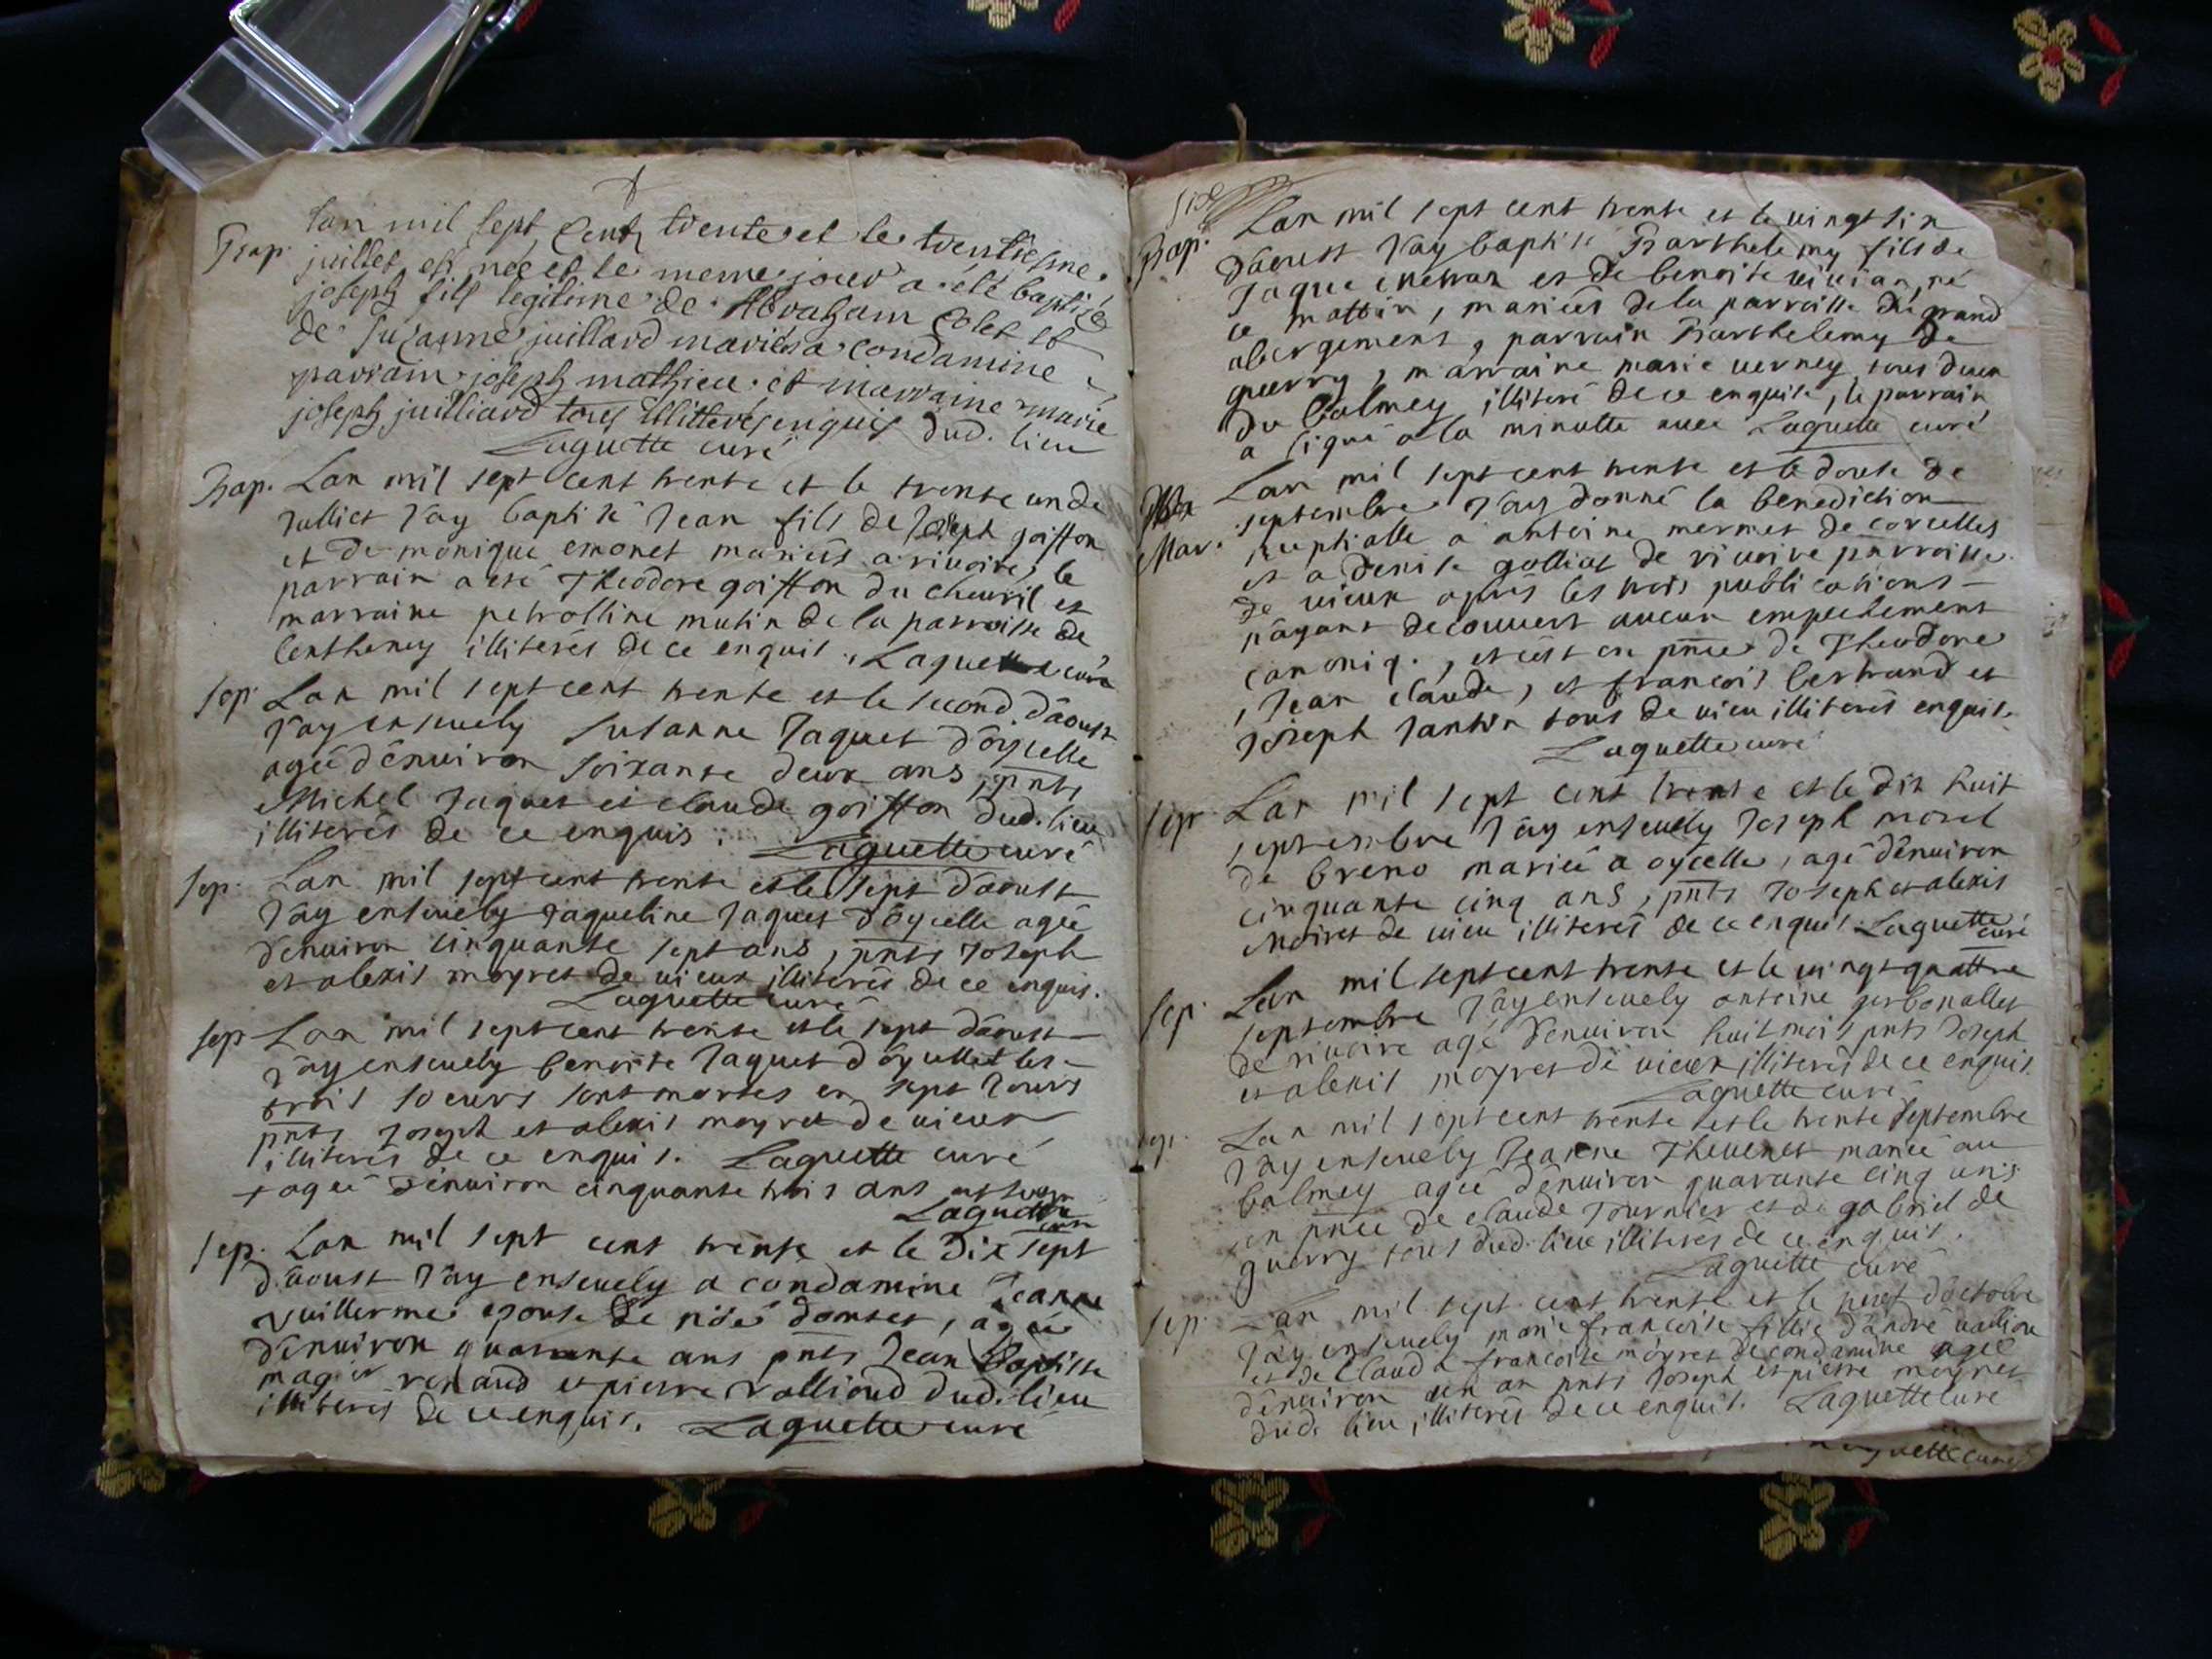 Bap. Lan mil sept Cent trente et le trentiesme
juillet est neé et le meme jour a été baptisé
joseph fils legitime de Abraham Colet et
de Suzanne juillard mariés a Condamine
parrain joseph mathieu et marraine marie
joseph juilliard tous illitterés enquis dud. lieu
Laguette curé
Bap. Lan mil sept cent trente et le trente un de
Julliet J'ay baptisé Jean fils de Joseph goiffon
et de monique emonet mariés a rivoire, le
parrain a esté Theodore goiffon du Chevril et
marraine petrolline mutin de la parroisse de
Centheney illiterés de ce enquis. Laguette curé
sep. Lan mil sept cent trente et le second d'aoust
J'ay ensevely Susanne Jaquet d'oycelle
ageé d'environ soixante deux ans, pnts
Michel Jaquet et claude goiffon dud. lieu
illiterés de ce enquis. Laguette curé
sep. Lan mil sept cent trente et le sept d'aoust
J'ay ensevely Jaqueline Jaquet d'oycelle ageé
d'environ cinquante sept ans, pnts Joseph
et alexis moyret de vieux illiterés de ce enquis.
Laguette curé
sep Lan mil sept cent trente et le sept d'aoust
J'ay ensevely benoite Jaquet d'oycelle les
trois soeurs sont mortes en sept Jours
pnts Joseph et alexis moyret de vieux
illiterés de ce enquis. Laguette curé
+ ageé d'environ cinquante trois ans
Laguette curé
sep. Lan mil sept cent trente et le dix sept
d'aoust J'ay ensevely a condamine Jeanne
Vuillerme epouse de noé domtet, ageé
d'environ quarante ans pnts Jean Baptiste
renaud et pierre Vallioud dud. lieu
illiterés de ce enquis. Laguette curé
Bap. Lan mil sept cent trente et le vingt six
d'aoust J'ay baptisé Barthelemy fils de
Jaque et de benoite vivian, né
ce mattin, mariés de la parroisse du grand
abergement, parrain Barthelemy de
guerry, marraine marie verney tous deux
du balmey illiteré de ce enquise, le parrain
a signé a la minutte avec Laguette curé
Lan mil sept cent trente et le douze de
Mar. septembre J'ay donné la benediction
nuptialle a antoine mermet de corcelles
et a denise golliat de rivoire parroisse
de vieux aprés les trois publications
n'ayant decouvert aucun empechement
canoniq., et c'est en pnce de Theodore
, Jean claude, et francois bertrand et
Joseph Jantin tous de vieu illiterés enquis.
Laguette curé
sep Lan mil sept cent trente et le dix huit
septembre J'ay ensevely Joseph morel
de breno marieé a oycelle, agé d'environ
cinquante cinq ans, pnts Joseph et alexis
Moiret de vieu illiterés de ce enquis Laguette curé
sep. Lan mil sept cent trente et le vingt quattre
septembre J'ay ensevely antoine gerbonallet
de rivoire agé d'environ huit mois pnts Joseph
et alexis moyret de vieux illiterés de ce enquis.
Laguette curé
sep. Lan mil sept cent trente et le trente Septembre
J'ay ensevely Jeanne Thevenet marieé au
balmey ageé d'environ quarante cinq ans
en pnce de claude Tournier et de gabriel de
guerry tous dud. lieu illiterés de ce enquis.
Laguette curé
sep. Lan mil sept cent trente et le neuf d'octobre
J'ay ensevely marie francoise fillie d'andré vallion
et de Claude francoise moyret de condamine ageé
d'environ un an pnts Joseph et pierre moyret
dud. lieu, illiterés de ce enquis. Laguette curé
Laguette curé